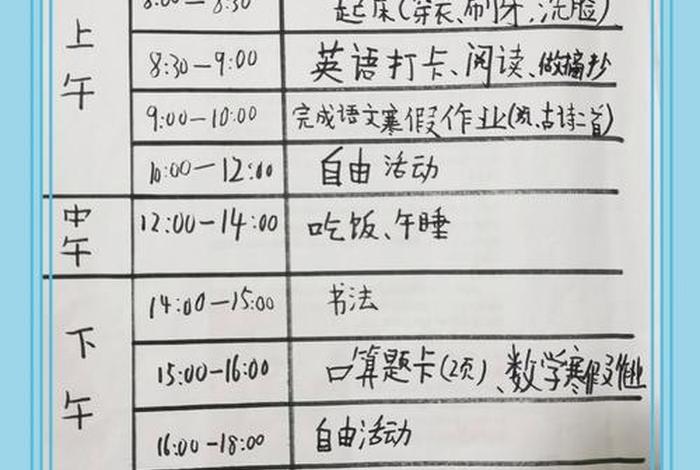 上午
8:00—8:30 起床(穿衣、刷牙、洗脸)
8:30—9:00 英语打卡、阅读、做摘抄
9:00—10:00 完成语文寒假作业(及古诗二首)
10:00—12:00 自由活动
中午
12:00—14:00 吃饭、午睡
下午
14:00—15:00 书法
15:00—16:00 口算题卡(2页)、数学寒假作业
16:00—18:00 自由活动